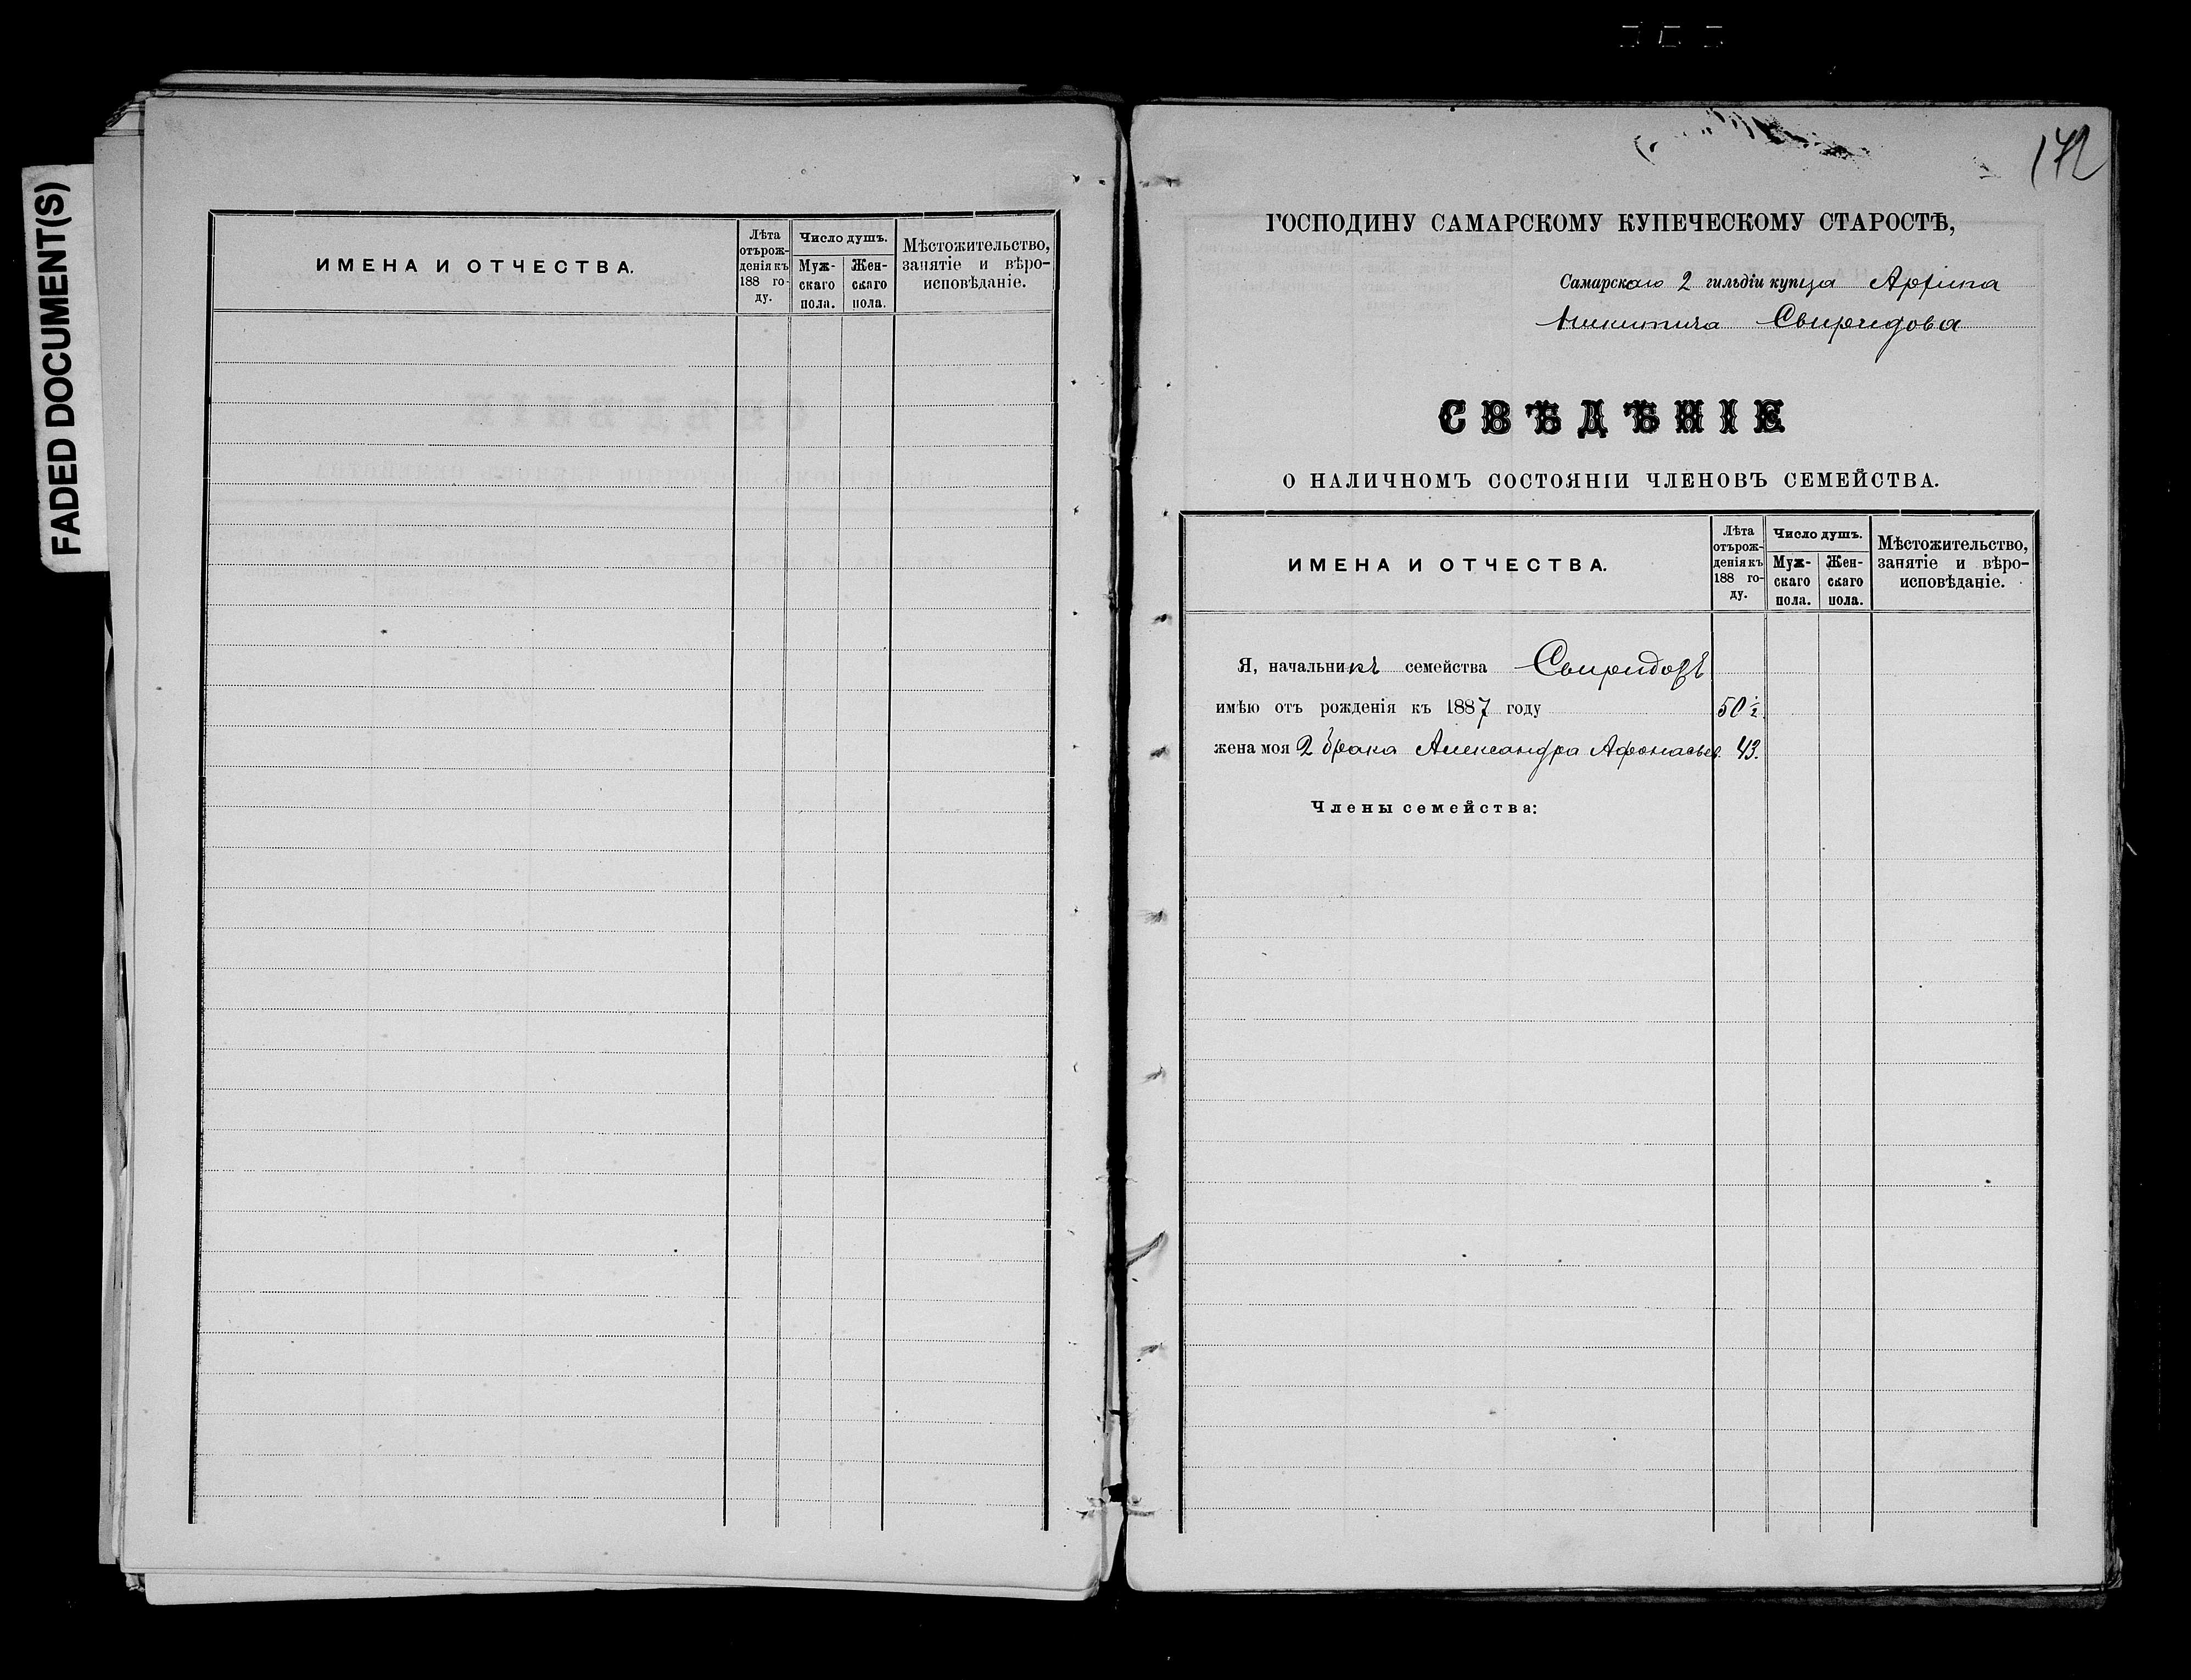 FADED DOCUMENT(S)
ИМЕНА И ОТЧЕСТВА.
Лѣта
отърож-
денія къ
188 го-
ду.
Число душъ.
Муж-
скаго
пола.
Жен-
скаго
пола.
Мѣстожительство,
занятіе и вѣро-
исповѣданіе.
172
ГОСПОДИНУ САМАРСКОМУ КУПЕЧЕСКОМУ СТАРОСТѢ,
Самарскаго 2 гильдіи купца
Никитича Свиридова
СВѢДѢНІЕ
О НАЛИЧНОМЪ СОСТОЯНІИ ЧЛЕНОВЪ СЕМЕЙСТВА.
ИМЕНА И ОТЧЕСТВА.
Лѣта
отърож-
денія къ
188 го-
ду.
Число душъ.
Муж-
скаго
пола.
Жен-
скаго
пола.
Мѣстожительство,
занятіе и вѣро-
исповѣданіе.
Я, начальникъ семейства Свиридовъ
имѣю отъ рожденія къ 1887 году 50 ½
жена моя 2 брака Александра Афонасьев. 43.
Члены семейства: